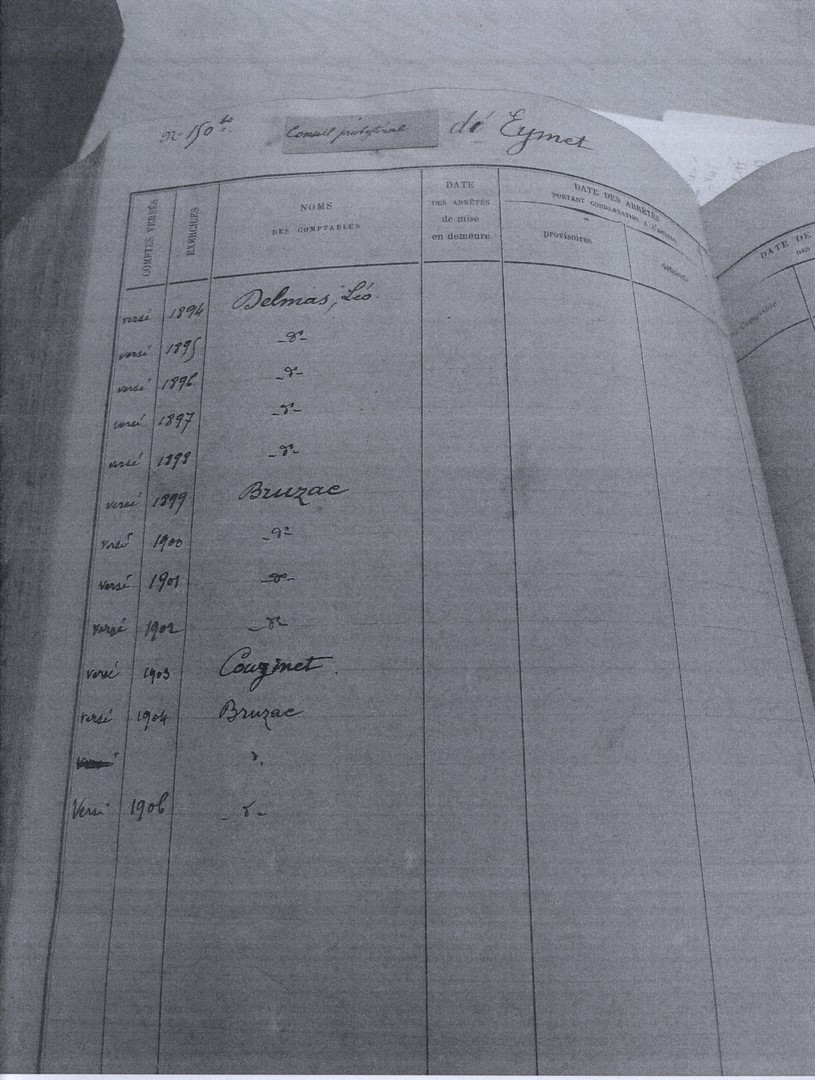 N° 150 bis. Conseil presbytéral de Eymet
COMPTES VERSÉS
EXERCICES
NOMS
DES COMPTABLES
DATE
DES ARRÊTÉS
de mise
en demeure
DATE DES ARRÊTÉS
PORTANT CONDAMNATION A L'AMENDE
provisoires
définitifs
DATE DE
DES
Comptable
versé 1894 Delmas, Léo.
versé 1895 -d°-
versé 1896 -d°-
versé 1897 -d°-
versé 1898 -d°-
versé 1899 Bruzac
versé 1900 -d°-
versé 1901 -d°-
versé 1902 -d°-
versé 1903 Couzinet.
versé 1904 Bruzac
versé
Versé 1906 -d-